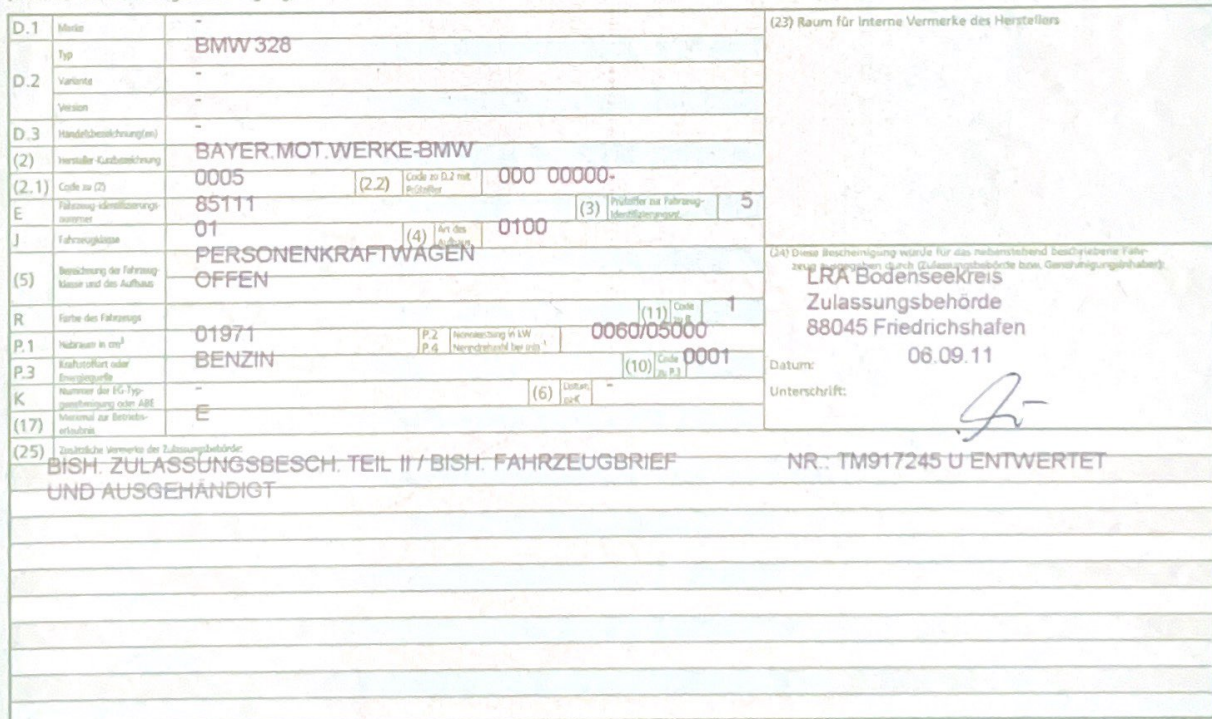 D.1 Marke -
Typ BMW 328
D.2 Variante -
Version -
D.3 Handelsbezeichnung(en) -
(2) Hersteller-Kurzbezeichnung BAYER.MOT.WERKE-BMW
(2.1) Code zu (2) 0005 (2.2) Code zu D.2 mit Prüfziffer 000 00000-
E Fahrzeug-Identifizierungs-nummer 85111 (3) Prüfziffer zur Fahrzeug-Identifizierungsnr. 5
J Fahrzeugklasse 01 (4) Art des Aufbaus 0100
(5) Bezeichnung der Fahrzeug-klasse und des Aufbaus PERSONENKRAFTWAGEN
OFFEN
R Farbe des Fahrzeugs (11) Code zu R 1
P.1 Hubraum in cm³ 01971 P.2 P.4 Nennleistung in kW Nenndrehzahl bei min⁻¹ 0060/05000
P.3 Kraftstoffart oder Energiequelle BENZIN (10) Code zu P.3 0001
K Nummer der EG-Typ-genehmigung oder ABE - (6) Datum zu K -
(17) Merkmal zur Betriebs-erlaubnis E
(23) Raum für interne Vermerke des Herstellers
(24) Diese Bescheinigung wurde für das nebenstehend beschriebene Fahr-
zeug ausgegeben durch (Zulassungsbehörde bzw. Genehmigungsinhaber):
LRA Bodenseekreis
Zulassungsbehörde
88045 Friedrichshafen
Datum: 06.09.11
Unterschrift:
(25) Zusätzliche Vermerke der Zulassungsbehörde:
BISH. ZULASSUNGSBESCH. TEIL II / BISH. FAHRZEUGBRIEF NR.: TM917245 U ENTWERTET
UND AUSGEHÄNDIGT